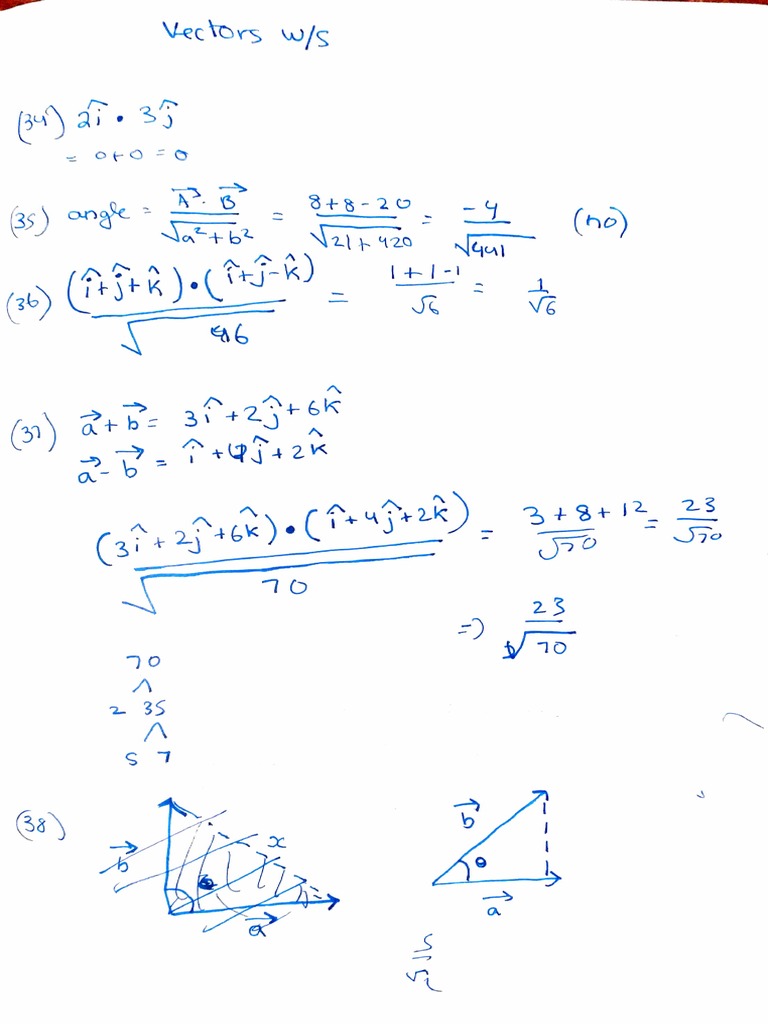 Vectors w/s
(34) 2î • 3ĵ
= 0+0 = 0
(35) angle = A⃗ · B⃗ / √a²+b² = 8+8-20 / √21+420 = -4 / √441 (no)
(36) (î+ĵ+k̂)•(î+ĵ-k̂) / √6 = 1+1-1 / √6 = 1/√6
(37) a⃗+b⃗ = 3î+2ĵ+6k̂
a⃗-b⃗ = î+4ĵ+2k̂
(3î+2ĵ+6k̂)•(î+4ĵ+2k̂) / √70 = 3+8+12 / √70 = 23/√70
=> 23/√70
70
2 35
5 7
(38) b⃗ x a⃗
b⃗ θ a⃗
5/√2